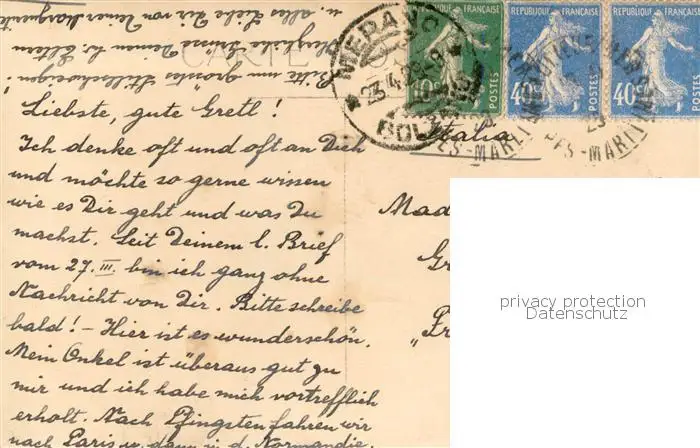 Liebste, gute Gretl!
Ich denke oft und oft an Dich
und möchte so gerne wissen
wie es Dir geht und was Du
machst. Seit Deinem l. Brief
vom 27. III. bin ich ganz ohne
Nachricht von Dir. Bitte schreibe
bald! – Hier ist es wunderschön.
Mein Onkel ist überaus gut zu
mir und ich habe mich vortrefflich
erholt. Nach Pfingsten fahren wir
nach Paris u. dann in d. Normandie.
Bitte um Stillschweigen!
Deinen l. Eltern
u. alles Liebe Dir von Deiner
CARTE
MERANO
23.4.29
RÉPUBLIQUE FRANÇAISE
10c POSTES
RÉPUBLIQUE FRANÇAISE
40c POSTES
RÉPUBLIQUE FRANÇAISE
40c POSTES
ES-MARITIMES
PES-MARITIM
Italia
Mad
Gr
"Pr
privacy protection
Datenschutz